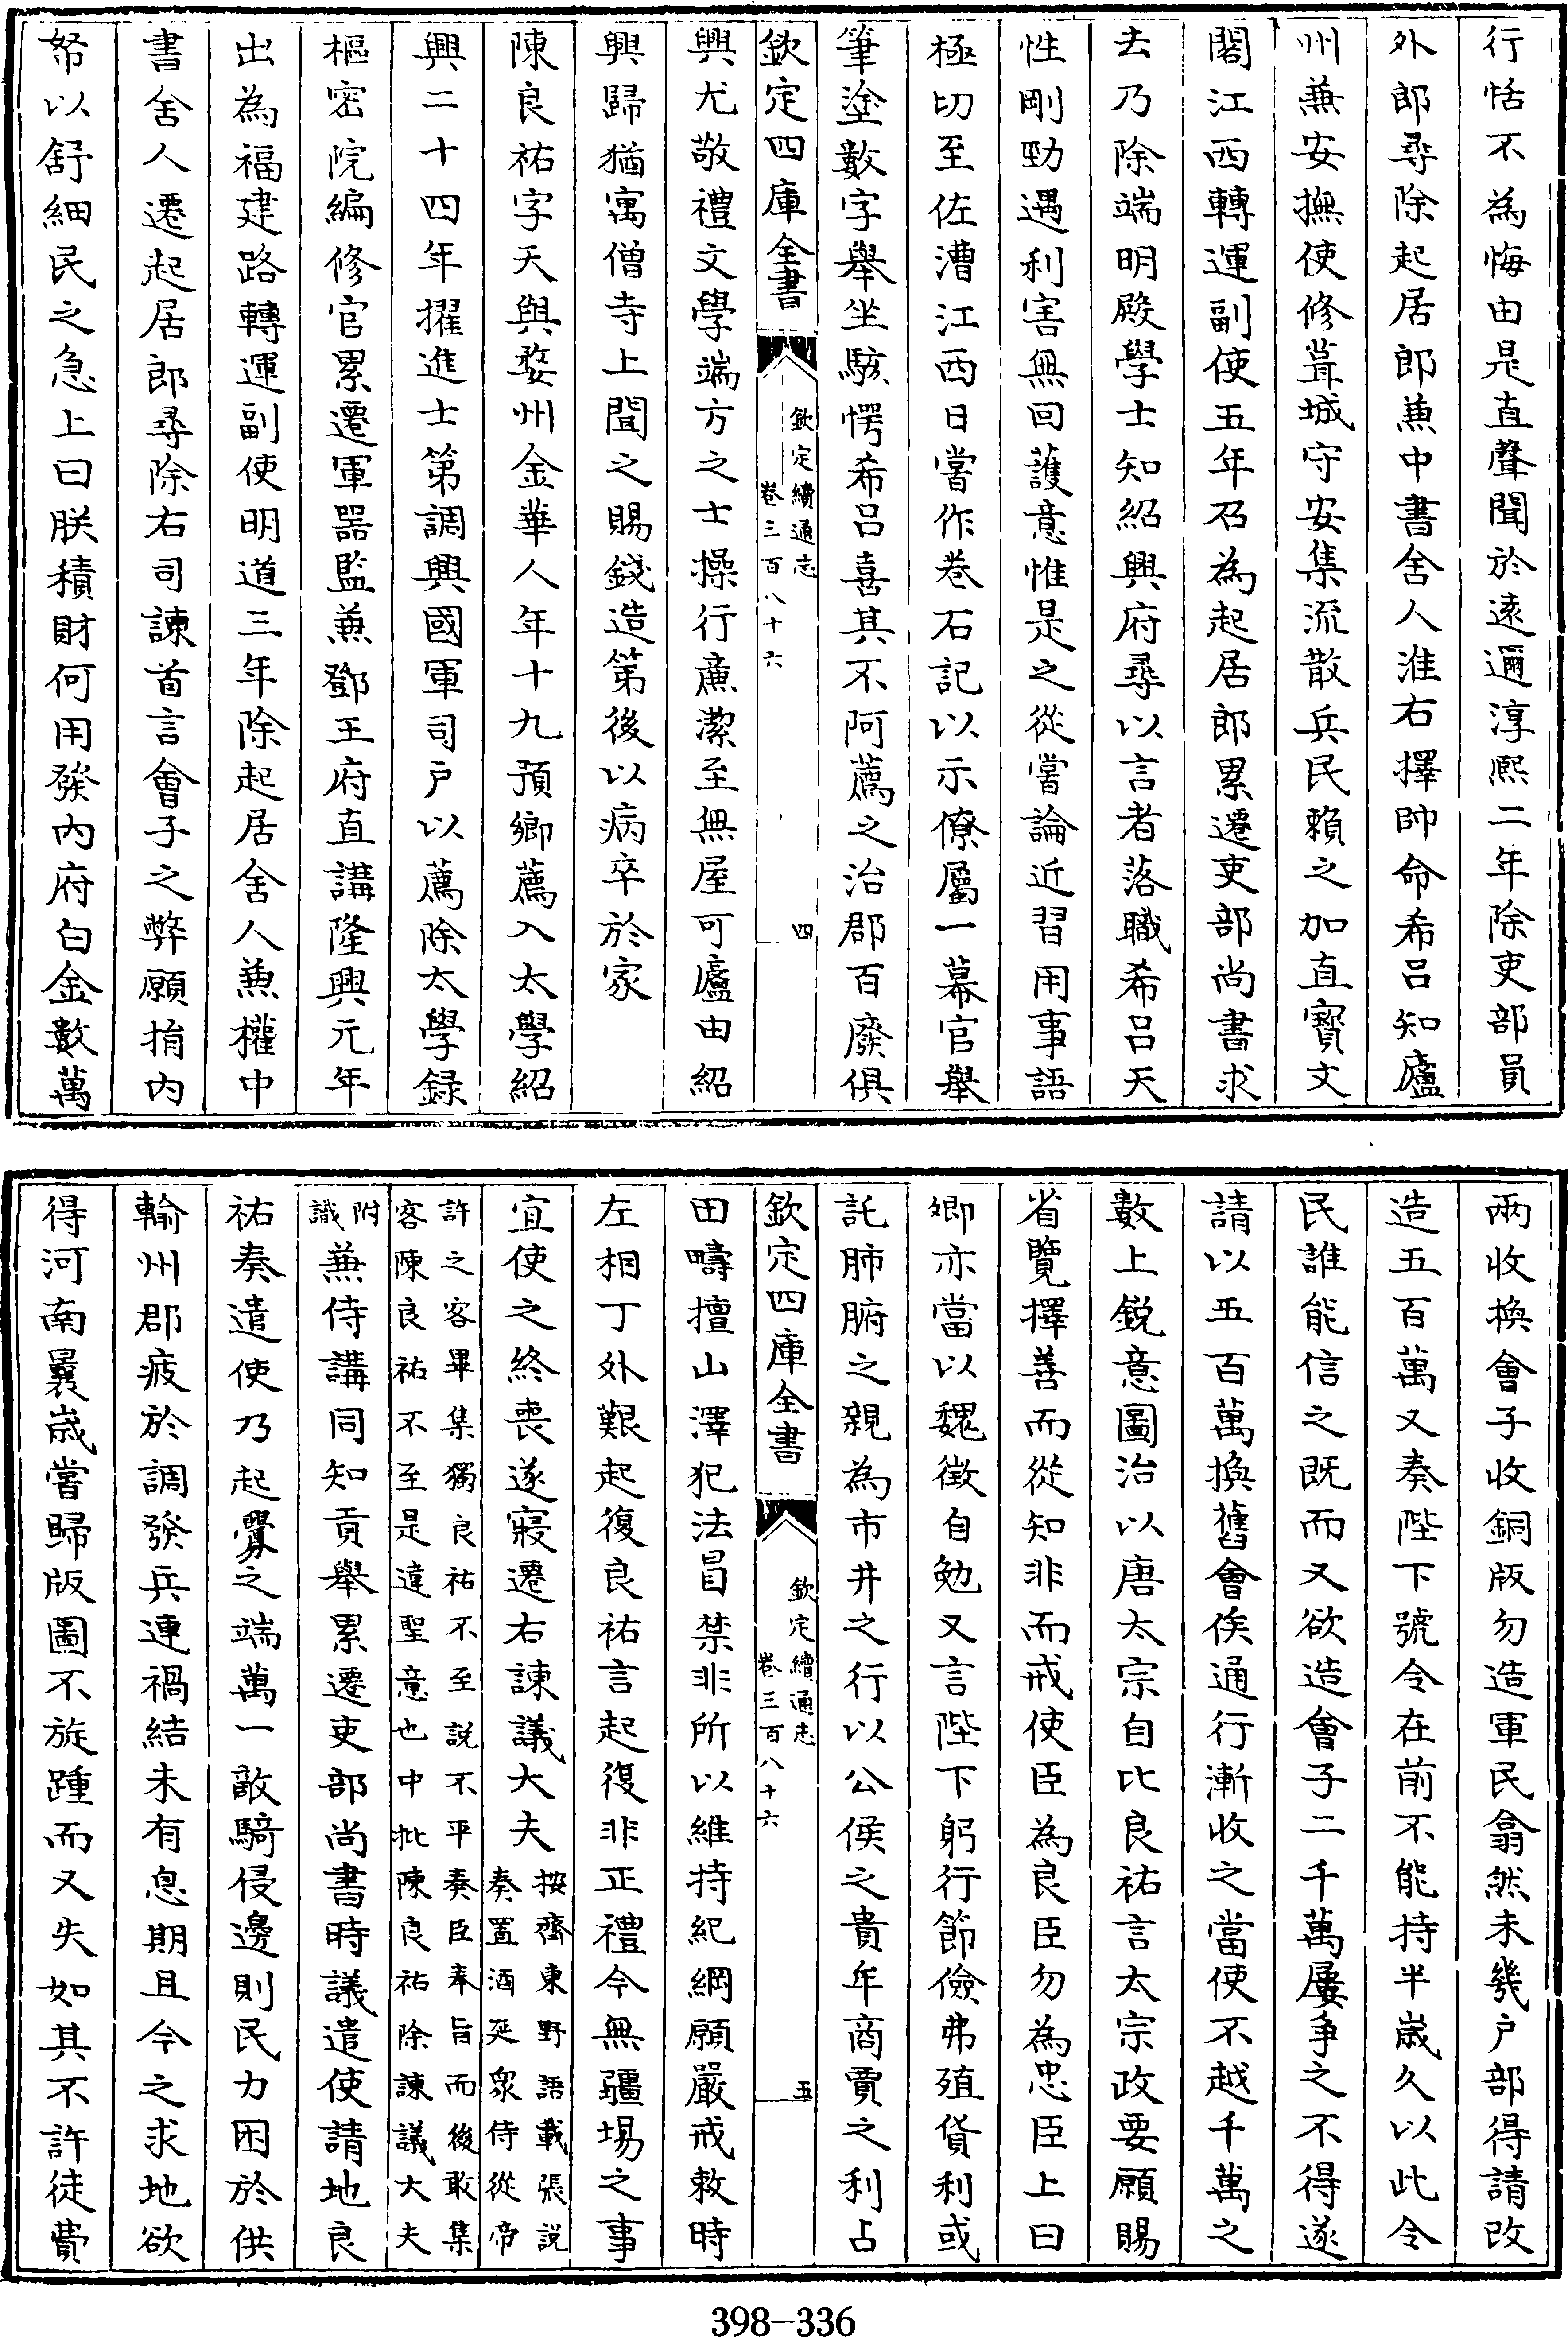 行恬不為悔由是直聲聞於逺邇淳熙二年除吏部員
外郎尋除起居郎兼中書舍人淮右擇帥命希呂知廬
州兼安撫使修葺城守安集流散兵民賴之加直寳文
閣江西轉運副使五年召為起居郎累遷吏部尚書求
去乃除端明殿學士知紹興府尋以言者落職希呂天
性剛勁遇利害無回護意惟是之從嘗論近習用事語
極切至佐漕江西日嘗作巻石記以示僚屬一幕官舉
筆塗數字舉坐駭愕希呂喜其不阿薦之治郡百廢俱
欽定四庫全書
欽定續通志
卷三百八十六
四
興尤敬禮文學端方之士操行廉潔至無屋可廬由紹
興歸猶寓僧寺上聞之賜錢造第後以病卒於家
陳良祐字天與婺州金華人年十九預鄉薦入太學紹
興二十四年擢進士第調興國軍司户以薦除太學録
樞密院編修官累遷軍器監兼鄧王府直講隆興元年
出為福建路轉運副使明道三年除起居舍人兼權中
書舍人遷起居郎尋除右司諫首言會子之弊願捐内
帑以舒細民之急上曰朕積財何用發内府白金數萬
兩收換會子收銅版勿造軍民翕然未幾户部得請改
造五百萬又奏陛下號令在前不能持半嵗久以此令
民誰能信之既而又欲造會子二千萬屢爭之不得遂
請以五百萬換舊會俟通行漸收之當使不越千萬之
數上鋭意圖治以唐太宗自比良祐言太宗政要願賜
省覽擇善而從知非而戒使臣為良臣勿為忠臣上曰
卿亦當以魏徵自勉又言陛下躬行節儉弗殖貨利或
託肺腑之親為市井之行以公侯之貴年商賈之利占
欽定四庫全書
欽定續通志
卷三百八十六
五
田疇擅山澤犯法冒禁非所以維持紀綱願嚴戒敕時
左相丁外艱起復良祐言起復非正禮今無疆埸之事
宜使之終喪遂寢遷右諫議大夫按齊東野語載張説
奏置酒延衆侍從帝
許之客畢集獨良祐不至説不平奏臣奉旨而後敢集
客陳良祐不至是違聖意也中批陳良祐除諫議大夫
附
識兼侍講同知貢舉累遷吏部尚書時議遣使請地良
祐奏遣使乃起釁之端萬一敵騎侵邊則民力困於供
輸州郡疲於調發兵連禍結未有息期且今之求地欲
得河南曩嵗嘗歸版圖不旋踵而又失如其不許徒費
398-336